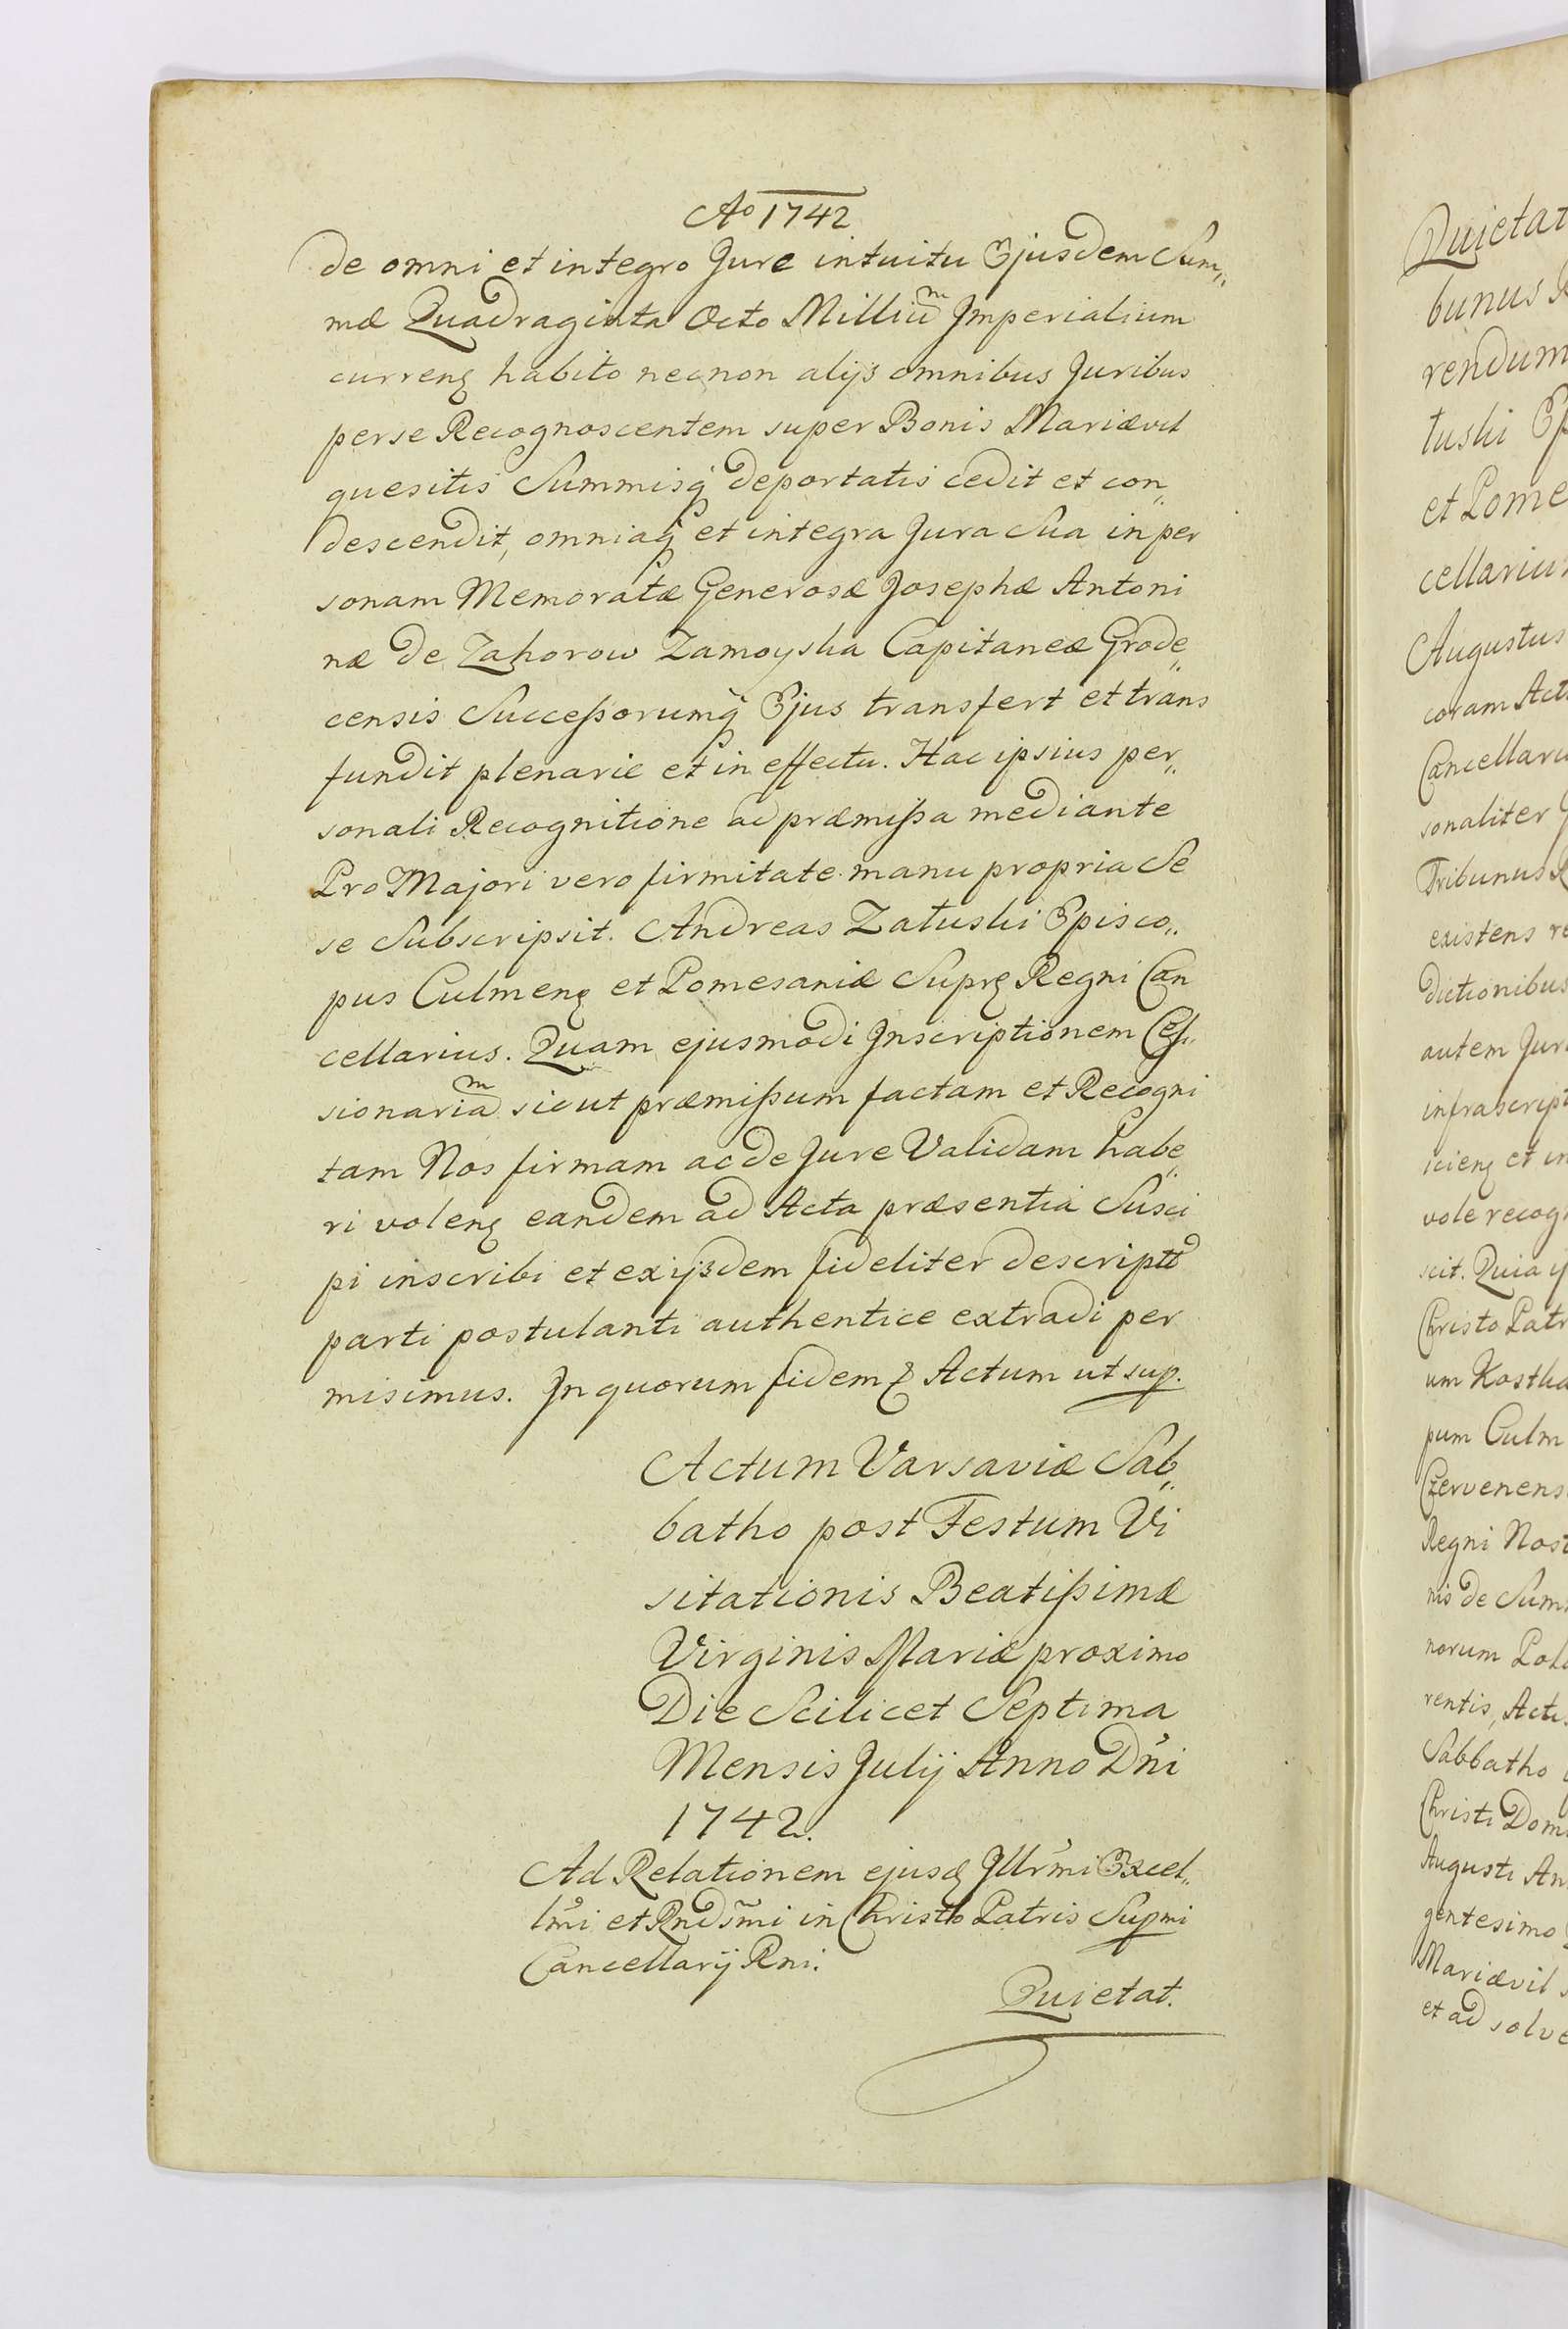 Ao 1742
de omni et integro Jure intuitu Ejusdem Sum„
mæ Quadraginta Octo Milliũm Imperialium
currenꝫ habito necnon alijs omnibus Juribus
per se Recognoscentem super Bonis Mariævil
quesitis Summisq̃ deportatis cedit et con„
descendit, omniaq̃ et integra Jura Sua in per
sonam Memoratæ Generosæ Josephæ Antoni
næ de Zahorow Zamoyska Capitaneæ Grode„
censis Successorumq̃ Ejus transfert et trans
fundit plenarie et in effectu. Hac ipsius per„
sonali Recognitione ad præmissa mediante
Pro Majori vero firmitate manu propria Se
se Subscripsit. Andreas Załuski Episco„
pus Culmenꝫ et Pomesaniæ Suprꝫ Regni Can
cellarius. Quam ejusmodi Inscriptionem Ces„
sionariam sicut præmissum factam et Recogni
tam Nos firmam ac de Jure Validam habe„
ri volenꝫ eandem ad Acta præsentia Susci
pi inscribi et ex ijsdem fideliter descriptã
parti postulanti authentice extradi per
misimus. In quorum fidem ꝫ Actum ut sup.
Actum Varsaviæ Sab„
batho post Festum Vi
sitationis Beatissimæ
Virginis Mariæ proximo
Die Scilicet Septima
Mensis Julij Anno Dñi
1742.
Ad Relationem ejusꝫ Illr̃mi Excel„
lm̃i et Rndsm̃i in Christo Patris Supmi
Cancellarij Rni.
Quietat.
Quietat
bunus R
rendum
tuski Ep
et Pome
cellariu
Augustus
coram Act
Cancellari
sonaliter
Tribunus R
existens re
dictionibus
autem Jur
infrascript
scienꝫ et in
vole recog
scit. Quia
Christo Patr
um Kostka
pum Culm
Czervenens
Regni Nost
nis de Sum
norum Pol
rentis, Act
Sabbatho
Christi Dom
Augusti An
gentesimo
Mariævil s
et ad solve